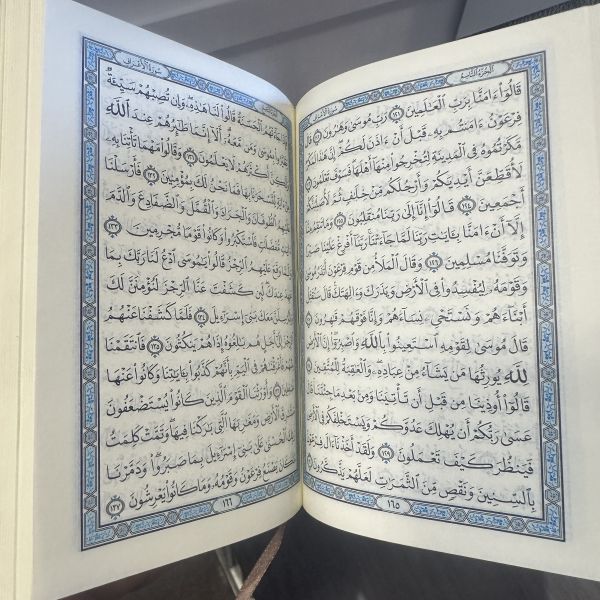 الجزء التاسع
سورة الأعراف
قَالُوٓا۟ ءَامَنَّا بِرَبِّ ٱلْعَٰلَمِينَ ١٢١ رَبِّ مُوسَىٰ وَهَٰرُونَ ١٢٢ قَالَ
فِرْعَوْنُ ءَامَنتُم بِهِۦ قَبْلَ أَنْ ءَاذَنَ لَكُمْ إِنَّ هَٰذَا لَمَكْرٌ
مَّكَرْتُمُوهُ فِى ٱلْمَدِينَةِ لِتُخْرِجُوا۟ مِنْهَآ أَهْلَهَا فَسَوْفَ تَعْلَمُونَ ١٢٣
لَأُقَطِّعَنَّ أَيْدِيَكُمْ وَأَرْجُلَكُم مِّنْ خِلَٰفٍ ثُمَّ لَأُصَلِّبَنَّكُمْ
أَجْمَعِينَ ١٢٤ قَالُوٓا۟ إِنَّآ إِلَىٰ رَبِّنَا مُنقَلِبُونَ ١٢٥ وَمَا تَنقِمُ مِنَّآ
إِلَّآ أَنْ ءَامَنَّا بِـَٔايَٰتِ رَبِّنَا لَمَّا جَآءَتْنَا رَبَّنَآ أَفْرِغْ عَلَيْنَا صَبْرًا
وَتَوَفَّنَا مُسْلِمِينَ ١٢٦ وَقَالَ ٱلْمَلَأُ مِن قَوْمِ فِرْعَوْنَ أَتَذَرُ مُوسَىٰ
وَقَوْمَهُۥ لِيُفْسِدُوا۟ فِى ٱلْأَرْضِ وَيَذَرَكَ وَءَالِهَتَكَ قَالَ سَنُقَتِّلُ
أَبْنَآءَهُمْ وَنَسْتَحْىِۦ نِسَآءَهُمْ وَإِنَّا فَوْقَهُمْ قَٰهِرُونَ ١٢٧
قَالَ مُوسَىٰ لِقَوْمِهِ ٱسْتَعِينُوا۟ بِٱللَّهِ وَٱصْبِرُوٓا۟ إِنَّ ٱلْأَرْضَ
لِلَّهِ يُورِثُهَا مَن يَشَآءُ مِنْ عِبَادِهِۦ وَٱلْعَٰقِبَةُ لِلْمُتَّقِينَ ١٢٨
قَالُوٓا۟ أُوذِينَا مِن قَبْلِ أَن تَأْتِيَنَا وَمِنۢ بَعْدِ مَا جِئْتَنَا قَالَ
عَسَىٰ رَبُّكُمْ أَن يُهْلِكَ عَدُوَّكُمْ وَيَسْتَخْلِفَكُمْ فِى ٱلْأَرْضِ
فَيَنظُرَ كَيْفَ تَعْمَلُونَ ١٢٩ وَلَقَدْ أَخَذْنَآ ءَالَ فِرْعَوْنَ
بِٱلسِّنِينَ وَنَقْصٍ مِّنَ ٱلثَّمَرَٰتِ لَعَلَّهُمْ يَذَّكَّرُونَ ١٣٠
١٦٥
سورة الأعراف
فَإِذَا جَآءَتْهُمُ ٱلْحَسَنَةُ قَالُوا۟ لَنَا هَٰذِهِۦ وَإِن تُصِبْهُمْ سَيِّئَةٌ
يَطَّيَّرُوا۟ بِمُوسَىٰ وَمَن مَّعَهُۥٓ أَلَآ إِنَّمَا طَٰٓئِرُهُمْ عِندَ ٱللَّهِ
وَلَٰكِنَّ أَكْثَرَهُمْ لَا يَعْلَمُونَ ١٣١ وَقَالُوا۟ مَهْمَا تَأْتِنَا بِهِۦ
مِنْ ءَايَةٍ لِّتَسْحَرَنَا بِهَا فَمَا نَحْنُ لَكَ بِمُؤْمِنِينَ ١٣٢ فَأَرْسَلْنَا
عَلَيْهِمُ ٱلطُّوفَانَ وَٱلْجَرَادَ وَٱلْقُمَّلَ وَٱلضَّفَادِعَ وَٱلدَّمَ
ءَايَٰتٍ مُّفَصَّلَٰتٍ فَٱسْتَكْبَرُوا۟ وَكَانُوا۟ قَوْمًا مُّجْرِمِينَ ١٣٣
وَلَمَّا وَقَعَ عَلَيْهِمُ ٱلرِّجْزُ قَالُوا۟ يَٰمُوسَى ٱدْعُ لَنَا رَبَّكَ بِمَا
عَهِدَ عِندَكَ لَئِن كَشَفْتَ عَنَّا ٱلرِّجْزَ لَنُؤْمِنَنَّ لَكَ
وَلَنُرْسِلَنَّ مَعَكَ بَنِىٓ إِسْرَٰٓءِيلَ ١٣٤ فَلَمَّا كَشَفْنَا عَنْهُمُ
ٱلرِّجْزَ إِلَىٰٓ أَجَلٍ هُم بَٰلِغُوهُ إِذَا هُمْ يَنكُثُونَ ١٣٥ فَٱنتَقَمْنَا
مِنْهُمْ فَأَغْرَقْنَٰهُمْ فِى ٱلْيَمِّ بِأَنَّهُمْ كَذَّبُوا۟ بِـَٔايَٰتِنَا وَكَانُوا۟ عَنْهَا
غَٰفِلِينَ ١٣٦ وَأَوْرَثْنَا ٱلْقَوْمَ ٱلَّذِينَ كَانُوا۟ يُسْتَضْعَفُونَ
مَشَٰرِقَ ٱلْأَرْضِ وَمَغَٰرِبَهَا ٱلَّتِى بَٰرَكْنَا فِيهَا وَتَمَّتْ كَلِمَتُ
رَبِّكَ ٱلْحُسْنَىٰ عَلَىٰ بَنِىٓ إِسْرَٰٓءِيلَ بِمَا صَبَرُوا۟ وَدَمَّرْنَا
مَا كَانَ يَصْنَعُ فِرْعَوْنُ وَقَوْمُهُۥ وَمَا كَانُوا۟ يَعْرِشُونَ ١٣٧
١٦٦